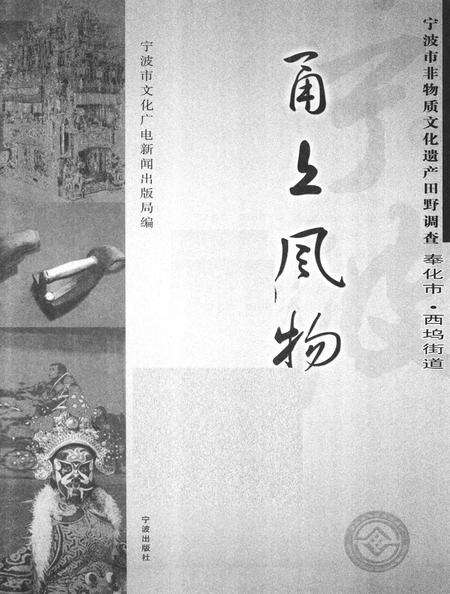 宁波市非物质文化遗产田野调查 奉化市·西坞街道
甬上风物
宁波市文化广电新闻出版局编
宁波出版社